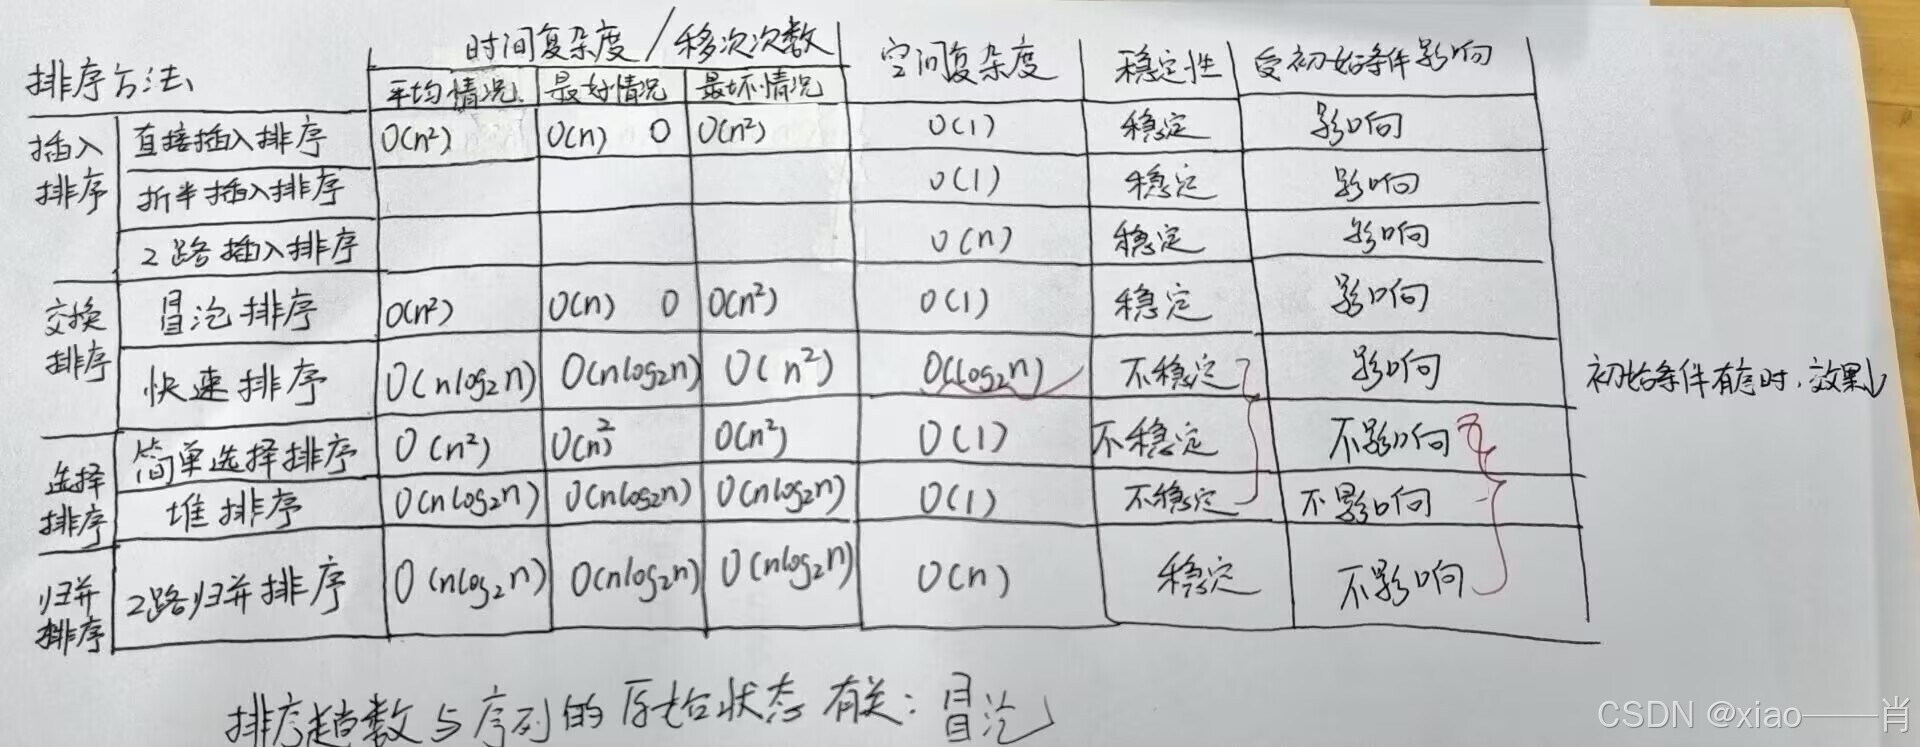 排序方法 时间复杂度/移次次数 空间复杂度 稳定性 受初始条件影响
平均情况 最好情况 最坏情况
插入排序 直接插入排序 O(n²) O(n) 0 O(n²) O(1) 稳定 影响
折半插入排序 O(1) 稳定 影响
2路插入排序 O(n) 稳定 影响
交换排序 冒泡排序 O(n²) O(n) 0 O(n²) O(1) 稳定 影响
快速排序 O(nlog₂n) O(nlog₂n) O(n²) O(log₂n) 不稳定 影响 初始条件有序时,效果↓
选择排序 简单选择排序 O(n²) O(n)² O(n²) O(1) 不稳定 不影响
堆排序 O(nlog₂n) O(nlog₂n) O(nlog₂n) O(1) 不稳定 不影响
归并排序 2路归并排序 O(nlog₂n) O(nlog₂n) O(nlog₂n) O(n) 稳定 不影响
排序趟数与序列的原始状态有关:冒泡
CSDN @xiao——肖